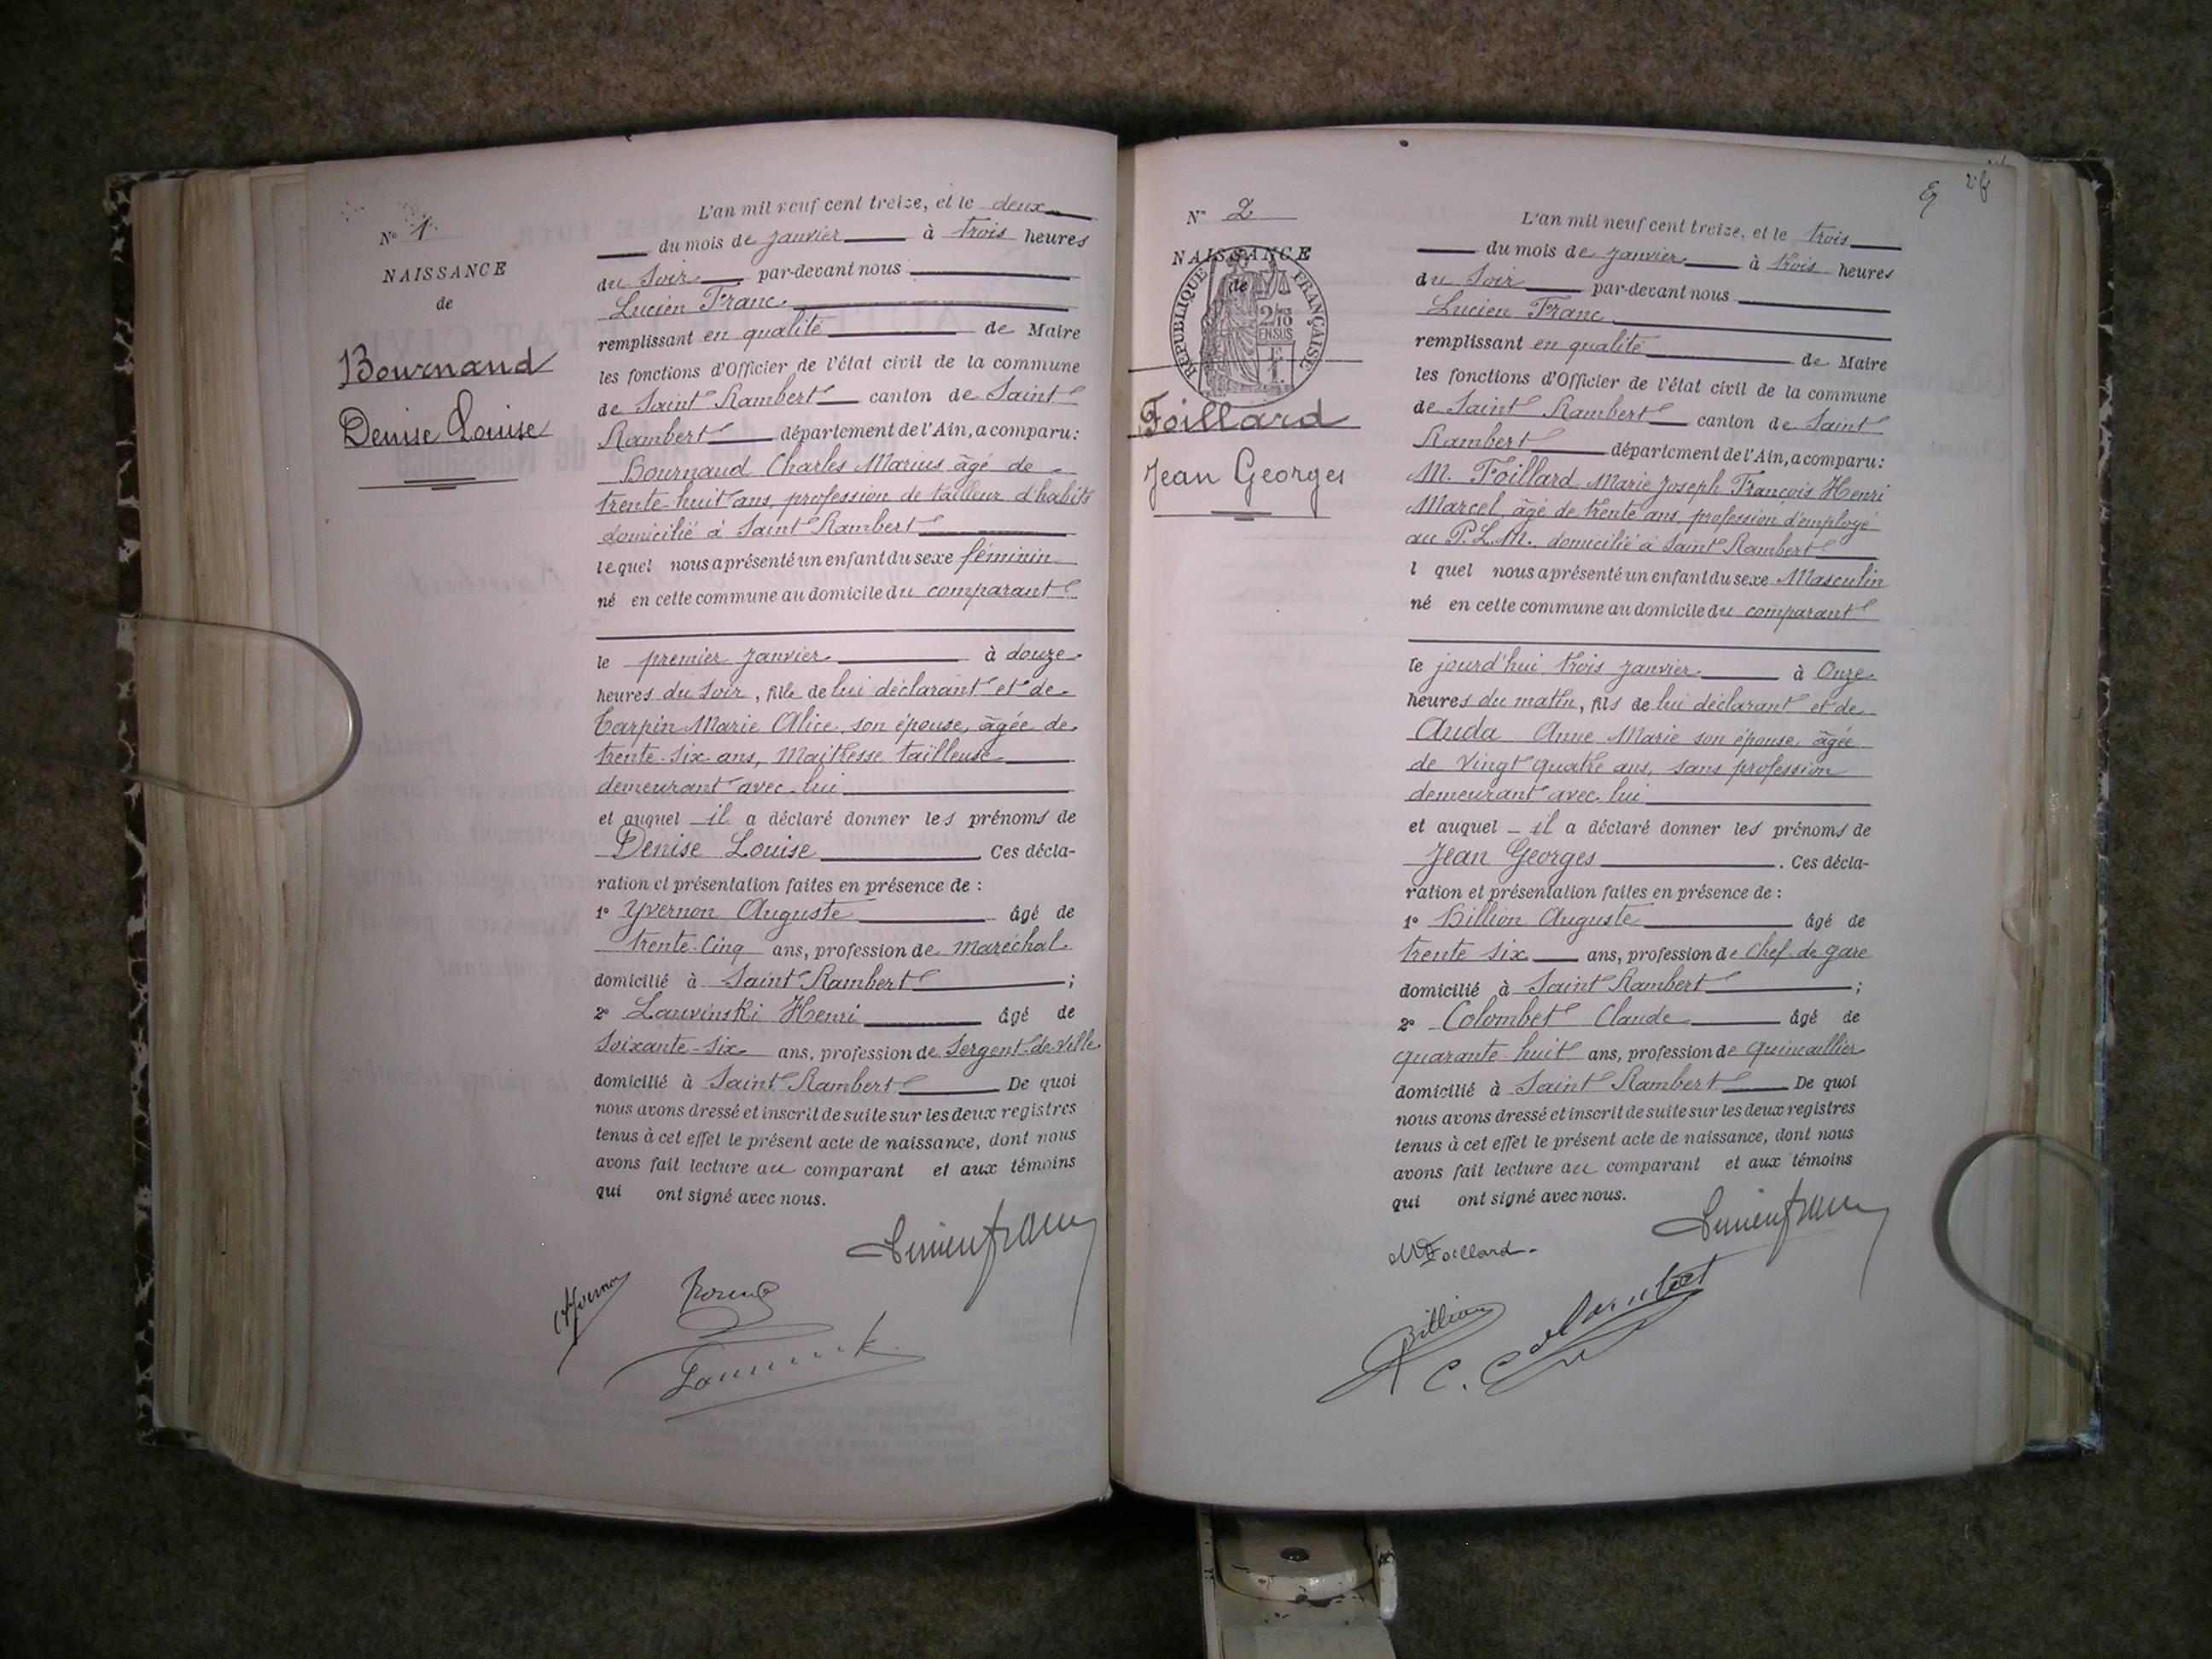 N° 1
NAISSANCE
de
Bournand
Denise Louise
L'an mil neuf cent treize, et le deux
du mois de Janvier à trois heures
du Soir par-devant nous
Lucien Franc
remplissant en qualité de Maire
les fonctions d'Officier de l'état civil de la commune
de Saint Rambert canton de Saint
Rambert département de l'Ain, a comparu:
Bournaud Charles Marius âgé de
trente-huit ans, profession de tailleur d'habits
domicilié à Saint Rambert
lequel nous a présenté un enfant du sexe féminin
né en cette commune au domicile du comparant
le premier Janvier à douze
heures du Soir, fille de lui déclarant et de
Carpin Marie Alice, son épouse, âgée de
trente-six ans, Maitresse tailleuse
demeurant avec lui
et auquel il a déclaré donner les prénoms de
Denise Louise Ces décla-
ration et présentation faites en présence de :
1° Yvernon Auguste âgé de
trente-Cinq ans, profession de Maréchal
domicilié à Saint Rambert ;
2° Lauvinski Henri âgé de
Soixante-Six ans, profession de Sergent-de-Ville
domicilié à Saint Rambert De quoi
nous avons dressé et inscrit de suite sur les deux registres
tenus à cet effet le présent acte de naissance, dont nous
avons fait lecture au comparant et aux témoins
qui ont signé avec nous.
Lucien franc
N° 2
NAISSANCE
de
REPUBLIQUE FRANÇAISE
2/10
EN SUS
Foillard
Jean Georges
L'an mil neuf cent treize, et le trois
du mois de Janvier à trois heures
du Soir par-devant nous
Lucien Franc
remplissant en qualité de Maire
les fonctions d'Officier de l'état civil de la commune
de Saint Rambert canton de Saint
Rambert département de l'Ain, a comparu:
M. Foillard Marie Joseph François Henri
Marcel, âgé de trente ans, profession d'employé
au P.L.M. domicilié à Saint Rambert
l quel nous a présenté un enfant du sexe Masculin
né en cette commune au domicile du comparant
le jourd'hui trois Janvier à Onze
heures du matin, fils de lui déclarant et de
Auda Anne Marie son épouse, âgée
de Vingt quatre ans, sans profession
demeurant avec lui
et auquel il a déclaré donner les prénoms de
Jean Georges. Ces décla-
ration et présentation faites en présence de :
1° Billion Auguste âgé de
trente six ans, profession de Chef de gare
domicilié à Saint Rambert ;
2° Colombet Claude âgé de
quarante huit ans, profession de quincaillier
domicilié à Saint Rambert De quoi
nous avons dressé et inscrit de suite sur les deux registres
tenus à cet effet le présent acte de naissance, dont nous
avons fait lecture au comparant et aux témoins
qui ont signé avec nous.
Lucien franc
M Foillard
Billion